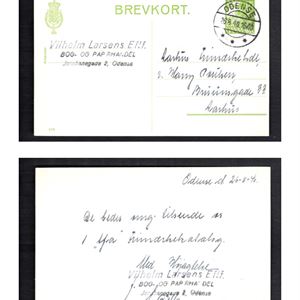 BREVKORT.
ODENSE
Vilhelm Larsens Eftf.
BOG- OG PAPIRHANDEL
Jernbanegade 2, Odense
Aarhus Frimærkehdl.
v. Harry Poulsen
Bruunsgade
Aarhus
Odense d.
De bedes mig tilsende et
1 stk Frimærkekatalog
Med Højagtelse
Vilhelm Larsens Eftf.
BOG- OG PAPIRHANDEL
Jernbanegade 2, Odense